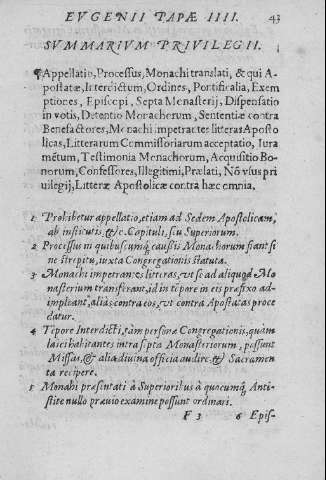 EVGENII PAPÆ IIII. 43
SVMMARIVM PRIVILEGII.
¶Appellatio, Processus, Monachi translati, & qui A-
postatæ, Interdictum, Ordines, Pontificalia, Exem
ptiones, Episcopi, Septa Monasterij, Dispensatio
in votis, Detentio Monachorum, Sententiæ contra
Benefactores, Monachi impetrãtes litteras Aposto
licas, Litterarum Commissoriarum acceptatio, Iura
mẽtum, Testimonia Monachorum, Acquisitio Bo-
norum, Confessores, Illegitimi, Prælati, Nõ vsus pri
uilegij, Litteræ Apostolicæ contra hæc omnia.
1 Prohibetur appellatio, etiam ad Sedem Apostolicam,
ab institutis, &c. Capituli, seu Superiorum.
2 Processus in quibuscumq; caussis Monachorum fiant si
ne strepitu, iuxta Congregationis statuta.
3 Monachi impetrantes litteras, vt se ad aliquod Mo
nasterium transferant, id in tẽpore in eis præfixo ad-
impleant, aliàs contra eos, vt contra Apostatas proce
datur.
4 Tẽpore Interdicti, tàm personæ Congregationis, quàm
laici habitantes intra septa Monasteriorum, possunt
Missas, & alia diuina officia audire, & Sacramen
ta recipere.
5 Monachi præsentati à Superioribus à quocumq; Anti-
stite nullo præuio examine possunt ordinari.
F 3 6 Epis-